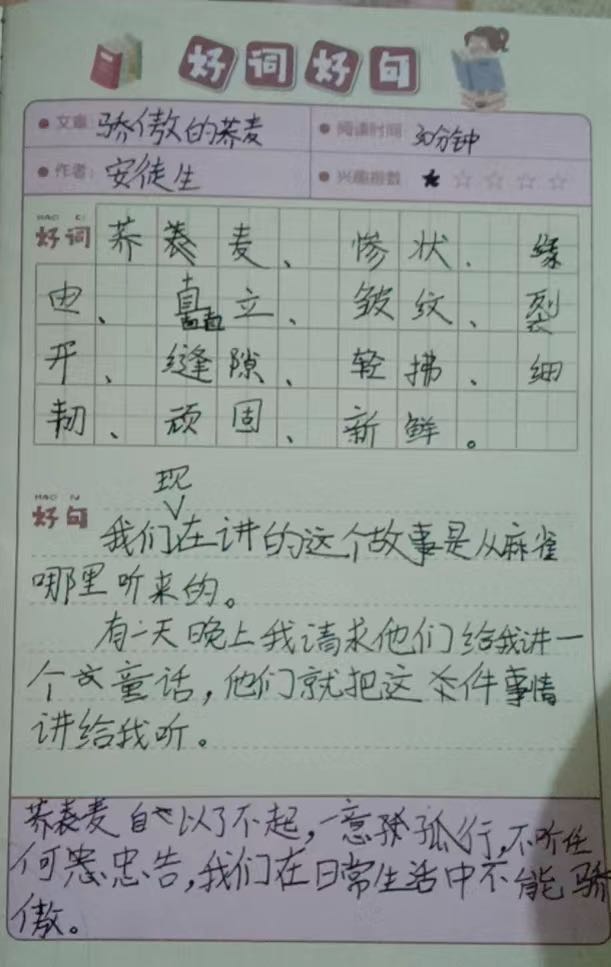 好词好句
文章：骄傲的荞麦 阅读时间：30分钟
作者：安徒生 兴趣指数
HAO CI
好词 荞麦、惨状、缘
由、直立、皱纹、裂
开、缝隙、轻拂、细
韧、顽固、新鲜。
HAO JU
好句
现
我们在讲的这个故事是从麻雀
哪里听来的。
有一天晚上我请求他们给我讲一
个童话，他们就把这件事情
讲给我听。
荞麦自以了不起，一意孤行，不听任
何忠告，我们在日常生活中不能骄
傲。